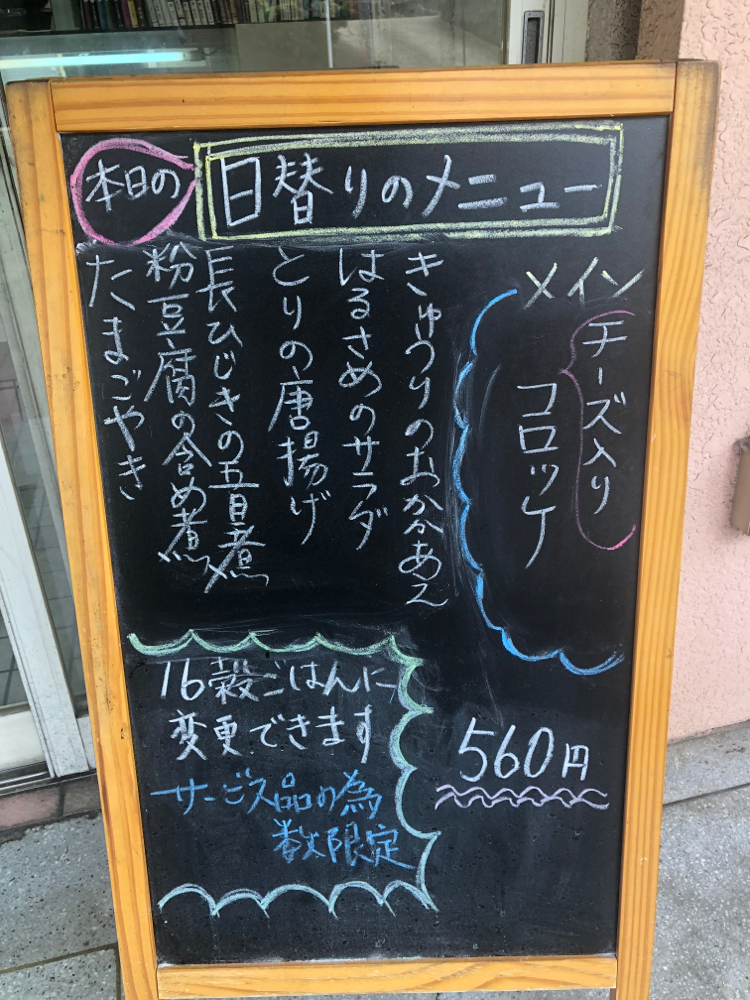 本日の
日替りのメニュー
メイン
チーズ入り
コロッケ
きゅうりのおかかあえ
はるさめのサラダ
とりの唐揚げ
長ひじきの五目煮
粉豆腐の含め煮
たまごやき
560円
16穀ごはんに
変更できます
サービス品の為
数限定